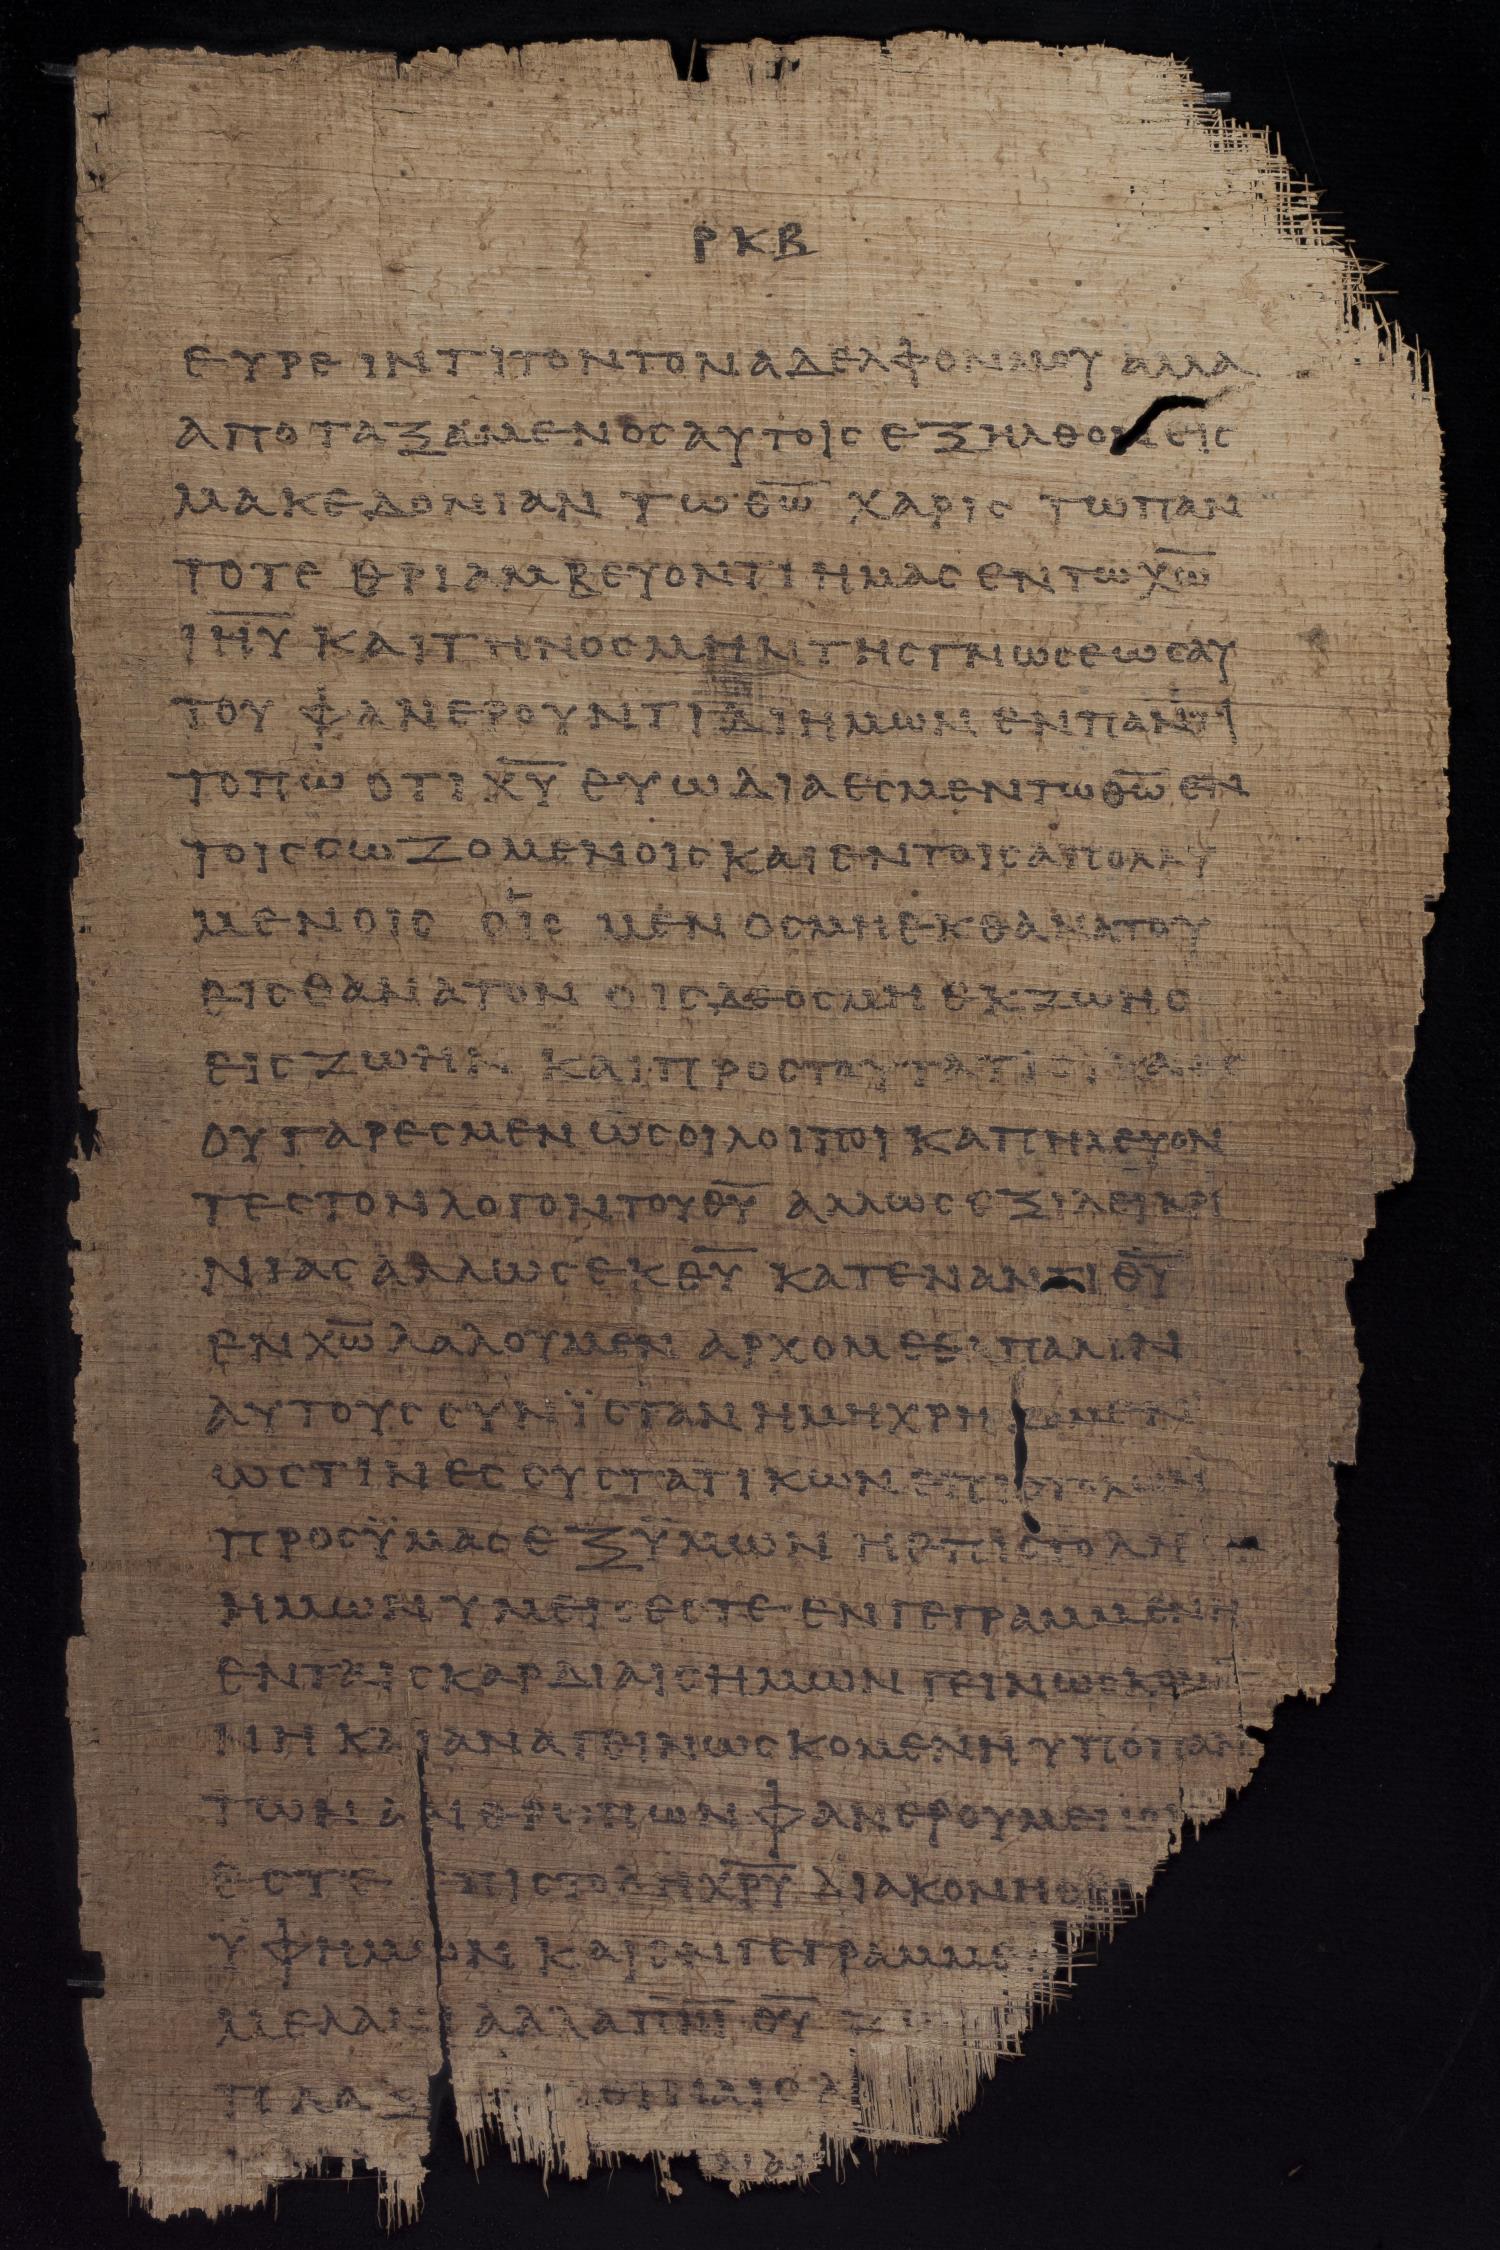 ΡΚΒ
ΕΥΡΕΙΝ ΤΙΤΟΝ ΤΟΝ ΑΔΕΛΦΟΝ ΜΟΥ ΑΛΛΑ
ΑΠΟΤΑΞΑΜΕΝΟΣ ΑΥΤΟΙΣ ΕΞΗΛΘΟΝ ΕΙΣ
ΜΑΚΕΔΟΝΙΑΝ ΤΩ Θ̅Ω̅ ΧΑΡΙΣ ΤΩ ΠΑΝ
ΤΟΤΕ ΘΡΙΑΜΒΕΥΟΝΤΙ ΗΜΑΣ ΕΝ ΤΩ Χ̅Ω̅
Ι̅Η̅Υ̅ ΚΑΙ ΤΗΝ ΟΣΜΗΝ ΤΗΣ ΓΝΩΣΕΩΣ ΑΥ
ΤΟΥ ΦΑΝΕΡΟΥΝΤΙ ΔΙ ΗΜΩΝ ΕΝ ΠΑΝΤΙ
ΤΟΠΩ ΟΤΙ Χ̅Υ̅ ΕΥΩΔΙΑ ΕΣΜΕΝ ΤΩ Θ̅Ω̅ ΕΝ
ΤΟΙΣ ΣΩΖΟΜΕΝΟΙΣ ΚΑΙ ΕΝ ΤΟΙΣ ΑΠΟΛΛΥ
ΜΕΝΟΙΣ ΟΙΣ ΜΕΝ ΟΣΜΗ ΕΚ ΘΑΝΑΤΟΥ
ΕΙΣ ΘΑΝΑΤΟΝ ΟΙΣ ΔΕ ΟΣΜΗ ΕΚ ΖΩΗΣ
ΕΙΣ ΖΩΗΝ ΚΑΙ ΠΡΟΣ ΤΑΥΤΑ ΤΙΣ
ΟΥ ΓΑΡ ΕΣΜΕΝ ΩΣ ΟΙ ΛΟΙΠΟΙ ΚΑΠΗΛΕΥΟΝ
ΤΕΣ ΤΟΝ ΛΟΓΟΝ ΤΟΥ Θ̅Υ̅ ΑΛΛ ΩΣ ΕΞ ΙΛΕΙΚΡΙ
ΝΙΑΣ ΑΛΛ ΩΣ ΕΚ Θ̅Υ̅ ΚΑΤΕΝΑΝΤΙ Θ̅Υ̅
ΕΝ Χ̅Ω̅ ΛΑΛΟΥΜΕΝ ΑΡΧΟΜΕΘΑ ΠΑΛΙΝ
ΑΥΤΟΥΣ ΣΥΝΪΣΤΑΝ Η ΜΗ ΧΡΗΖΟΜΕΝ
ΩΣ ΤΙΝΕΣ ΣΥΣΤΑΤΙΚΩΝ ΕΠΙΣΤΟΛΩΝ
ΠΡΟΣ ΫΜΑΣ ΕΞ ΫΜΩΝ Η ΕΠΙΣΤΟΛΗ
ΗΜΩΝ ΥΜΕΙΣ ΕΣΤΕ ΕΝΓΕΓΡΑΜΜΕΝΗ
ΕΝ ΤΑΙΣ ΚΑΡΔΙΑΙΣ ΗΜΩΝ ΓΕΙΝΩΣΚΟΜΕ
ΝΗ ΚΑΙ ΑΝΑΓΕΙΝΩΣΚΟΜΕΝΗ ΥΠΟ ΠΑΝ
ΤΩΝ ΑΝΘΡΩΠΩΝ ΦΑΝΕΡΟΥΜΕΝΟΙ
ΕΣΤΕ ΕΠΙΣΤΟΛΗ Χ̅Ρ̅Υ̅ ΔΙΑΚΟΝΗΘΕΙ
ΫΦ ΗΜΩΝ ΚΑΙ ΕΝΓΕΓΡΑΜΜΕ
ΜΕΛΑΝΙ ΑΛΛΑ Π̅Ν̅Ι̅ Θ̅Υ̅ Ζ
ΠΛΑΞ